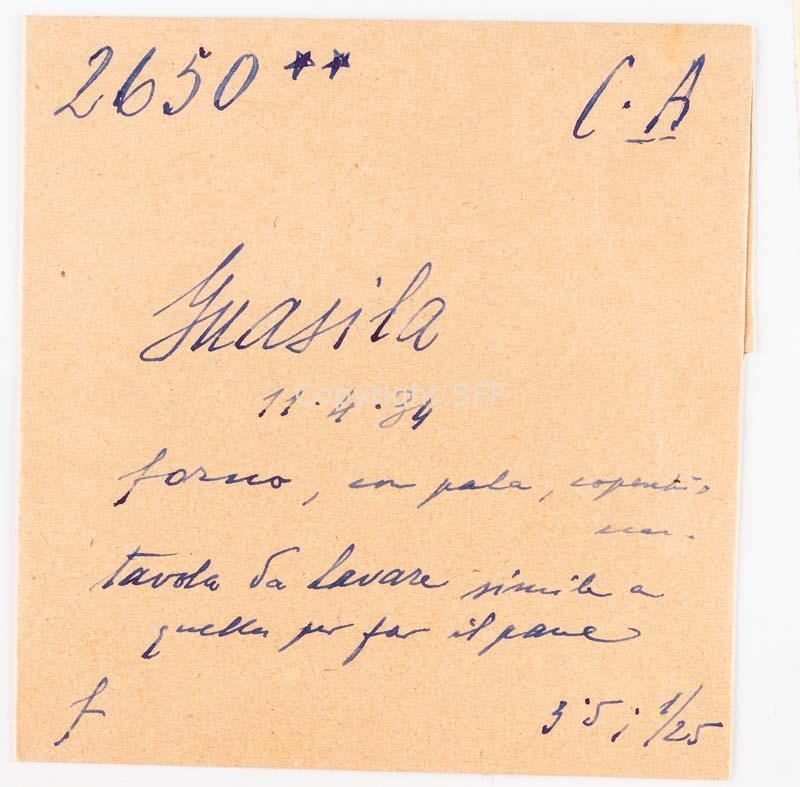 2650 **
C. A
Guasila
11.4.34
forno, con pala, coperchio
tavola da lavare simile a
quella per far il pane
f
3.5; 1/25
Copyright SFF